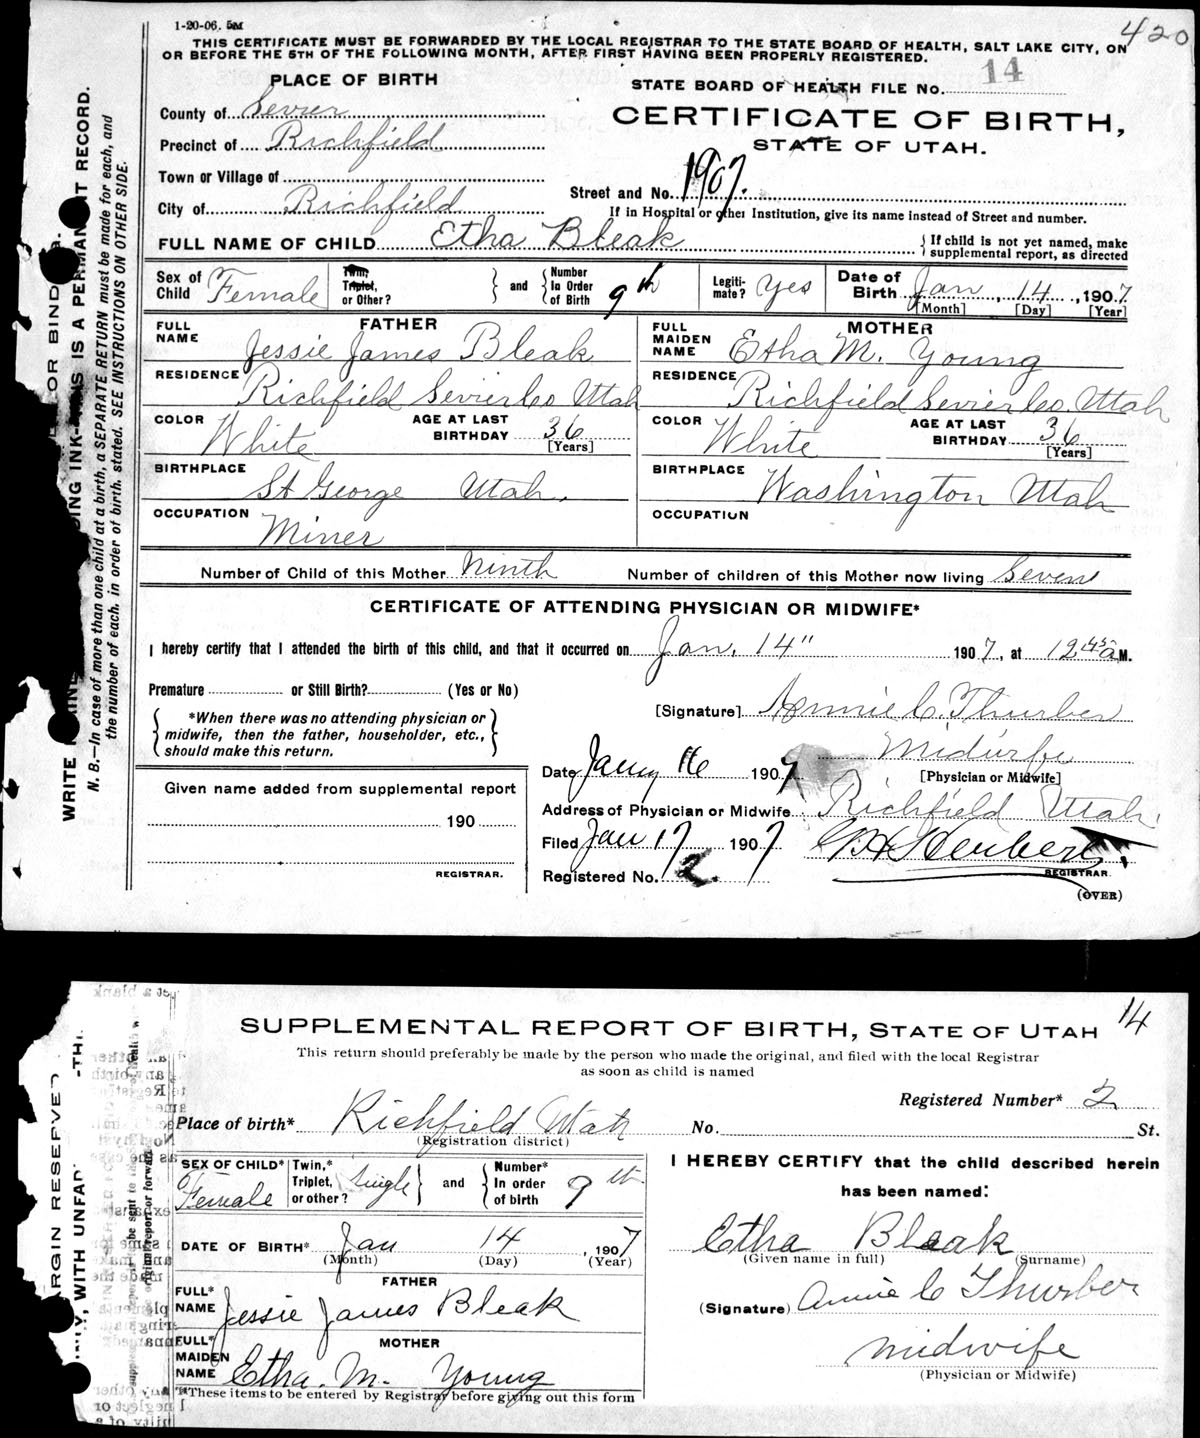 1-20-06. 5M
420
THIS CERTIFICATE MUST BE FORWARDED BY THE LOCAL REGISTRAR TO THE STATE BOARD OF HEALTH, SALT LAKE CITY, ON
OR BEFORE THE 5TH OF THE FOLLOWING MONTH, AFTER FIRST HAVING BEEN PROPERLY REGISTERED.
PLACE OF BIRTH
STATE BOARD OF HEALTH FILE No. 14
County of Sevier
CERTIFICATE OF BIRTH,
Precinct of Richfield
STATE OF UTAH.
Town or Village of
Street and No. 1907.
City of Richfield
If in Hospital or other Institution, give its name instead of Street and number.
FULL NAME OF CHILD Etha Bleak
{ If child is not yet named, make
supplemental report, as directed
Sex of Child Female
Twin, Triplet, or Other? } and { Number In Order of Birth 9th
Legitimate? Yes
Date of Birth Jan, 14, 1907
[Month] [Day] [Year]
FATHER
FULL NAME Jessie James Bleak
RESIDENCE Richfield Sevier Co Utah
COLOR White AGE AT LAST BIRTHDAY 36 [Years]
BIRTHPLACE St George Utah.
OCCUPATION Miner
MOTHER
FULL MAIDEN NAME Etha M. Young
RESIDENCE Richfield Sevier Co. Utah
COLOR White AGE AT LAST BIRTHDAY 36 [Years]
BIRTHPLACE Washington Utah
OCCUPATION
Number of Child of this Mother Ninth Number of children of this Mother now living Seven
CERTIFICATE OF ATTENDING PHYSICIAN OR MIDWIFE*
I hereby certify that I attended the birth of this child, and that it occurred on Jan. 14" 1907, at 12 45 a M.
Premature or Still Birth? (Yes or No)
{ *When there was no attending physician or
midwife, then the father, householder, etc.,
should make this return. }
[Signature] Annie C. Thurber
Midwife
[Physician or Midwife]
Date Jany 16 1907
Address of Physician or Midwife Richfield Utah.
Filed Jan 17 1907
REGISTRAR
Registered No. 2.
(OVER)
Given name added from supplemental report
190
REGISTRAR.
N. B.—In case of more than one child at a birth, a SEPARATE RETURN must be made for each, and
the number of each, in order of birth, stated. SEE INSTRUCTIONS ON OTHER SIDE.
14
SUPPLEMENTAL REPORT OF BIRTH, STATE OF UTAH
This return should preferably be made by the person who made the original, and filed with the local Registrar
as soon as child is named
Registered Number* 2
Place of birth* Richfield Utah No. St.
(Registration district)
SEX OF CHILD* Female
Twin,* Triplet, or other? Single } and { Number* In order of birth 9th
DATE OF BIRTH* Jan 14, 1907
(Month) (Day) (Year)
FATHER
FULL* NAME Jessie James Bleak
MOTHER
FULL* MAIDEN NAME Etha. M. Young
*These items to be entered by Registrar before giving out this form
I HEREBY CERTIFY that the child described herein
has been named:
Etha Bleak
(Given name in full) (Surname)
(Signature) Annie C Thurber
midwife
(Physician or Midwife)